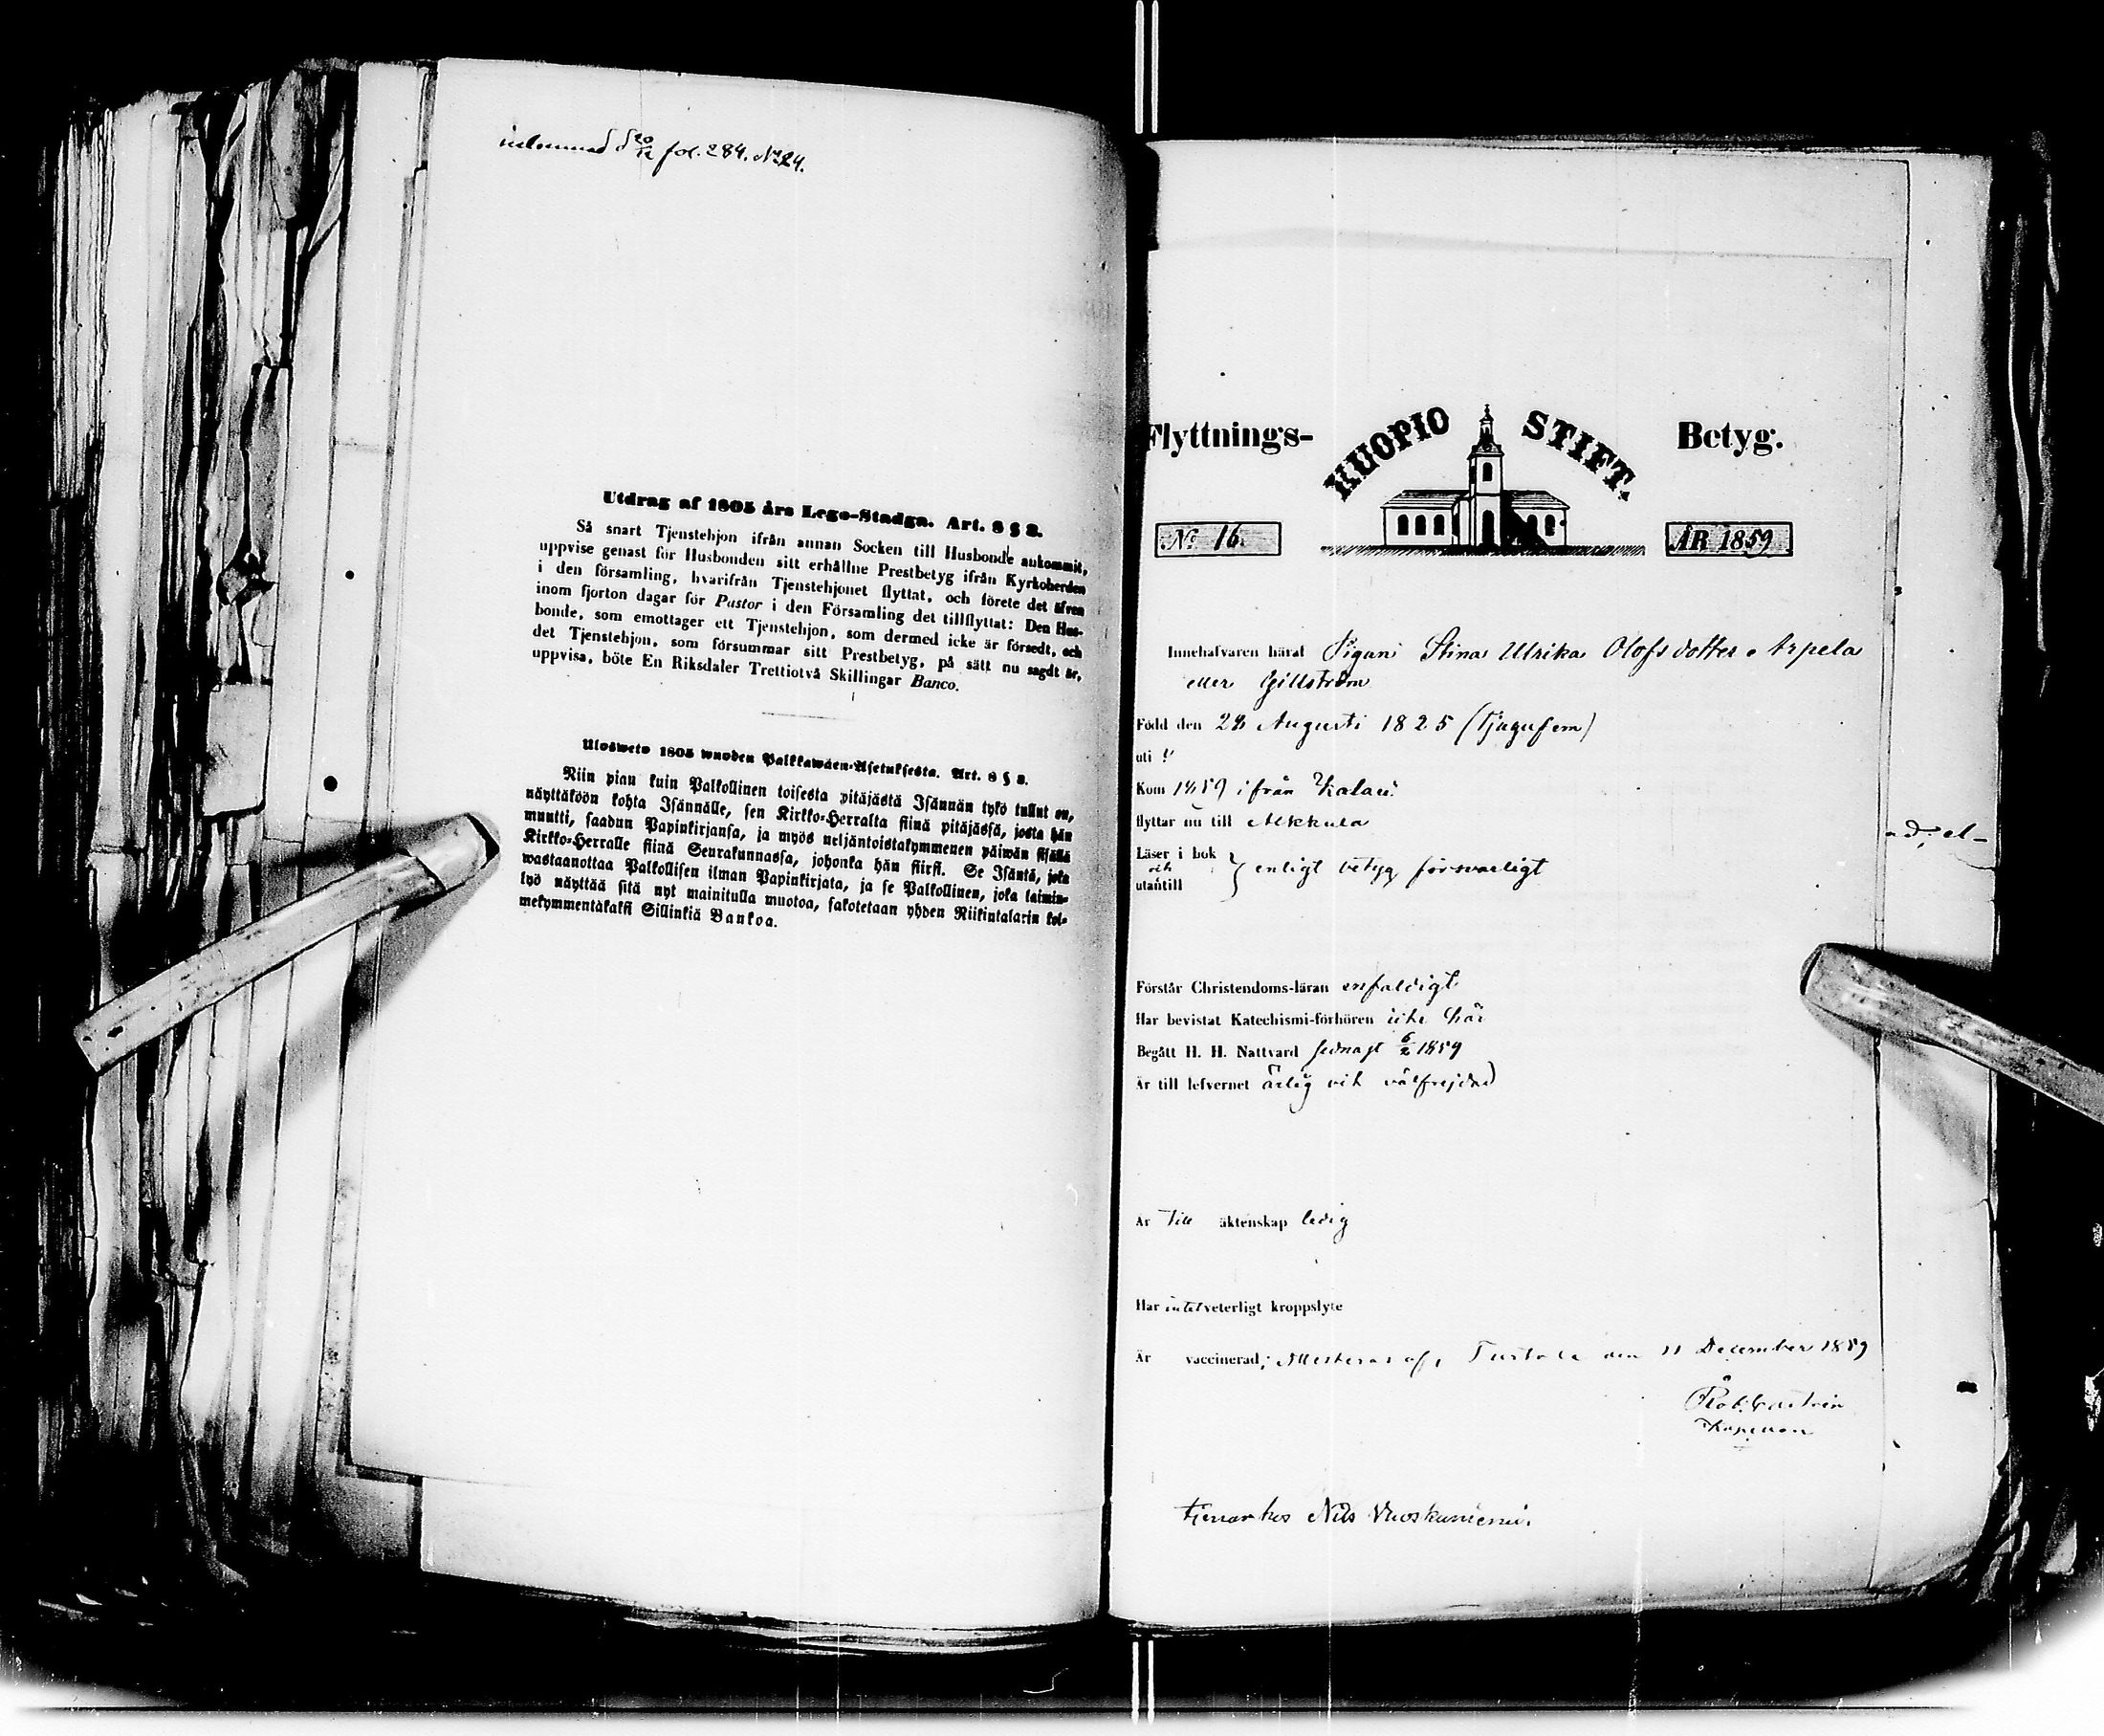 inkommed d 20/12 fol. 284. No 24.
Utdrag af 1805 års Lego-Stadga. Art. 8 § 8.
Så snart Tjenstehjon ifrån annan Socken till Husbonde ankommit,
uppvise genast för Husbonden sitt erhållne Prestbetyg ifrån Kyrkoherden
i den församling, hvarifrån Tjenstehjonet flyttat, och förete det äfven
inom fjorton dagar för Pastor i den Församling det tillflyttat: Den Hus-
bonde, som emottager ett Tjenstehjon, som dermed icke är försedt, och
det Tjenstehjon, som försummar sitt Prestbetyg, på sätt nu sagdt är,
uppvisa, böte En Riksdaler Trettiotvå Skillingar Banco.
Ulosweto 1805 wuoden Palkkawäen-Asetuksesta. Art. 8 § 8.
Niin pian kuin Palkollinen toisesta pitäjästä Isännän tykö tullut on,
näyttäköön kohta Isännälle, sen Kirkko-Herralta siinä pitäjässä, josta hän
muutti, saadun Papinkirjansa, ja myös neljäntoistakymmenen päiwän sisällä
Kirkko-Herralle siinä Seurakunnassa, johonka hän siirsi. Se Isäntä, joka
wastaanottaa Palkollisen ilman Papinkirjata, ja se Palkollinen, joka laimin-
lyö näyttää sitä nyt mainitulla muotoa, sakotetaan yhden Riikintalarin kol-
mekymmentäkaksi Sillinkiä Bankoa.
Flyttnings- KUOPIO STIFT. Betyg.
No 16. ÅR 1859
Innehafvaren härat Pigan Stina Ulrika Olofsdotter Arpela
eller Gillström
Född den 28 Augusti 1825 (tjugufem)
uti "
Kom 1859 ifrån Kalari
flyttar nu till Alkkula
Läser i bok
och } enligt betyg försvarligt
utantill
Förstår Christendoms-läran enfaldigt
Har bevistat Katechismi-förhören icke här
Begått H. H. Nattvard sednast 6/2 1859
Är till lefvernet ärlig och välfrejdad
Är till äktenskap ledig
Har intet veterligt kroppslyte
Är vaccinerad; Turtola den 11 December 1859
Rob. Castrén
Kapellan
tjenar hos Nils Vuoskuniemi.